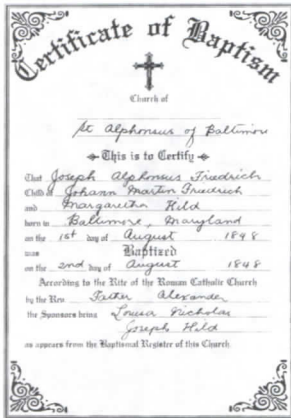 Certificate of Baptism
Church of
St Alphonsus of Baltimore
This is to Certify
That Joseph Alphonsus Friedrich
Child of Johann Martin Friedrich
and Margaretha Hild
born in Baltimore, Maryland
on the 1st day of August 1848
was Baptized
on the 2nd day of August 1848
According to the Rite of the Roman Catholic Church
by the Rev. Father Alexander
the Sponsors being Louisa Nicholas
Joseph Hild
as appears from the Baptismal Register of this Church